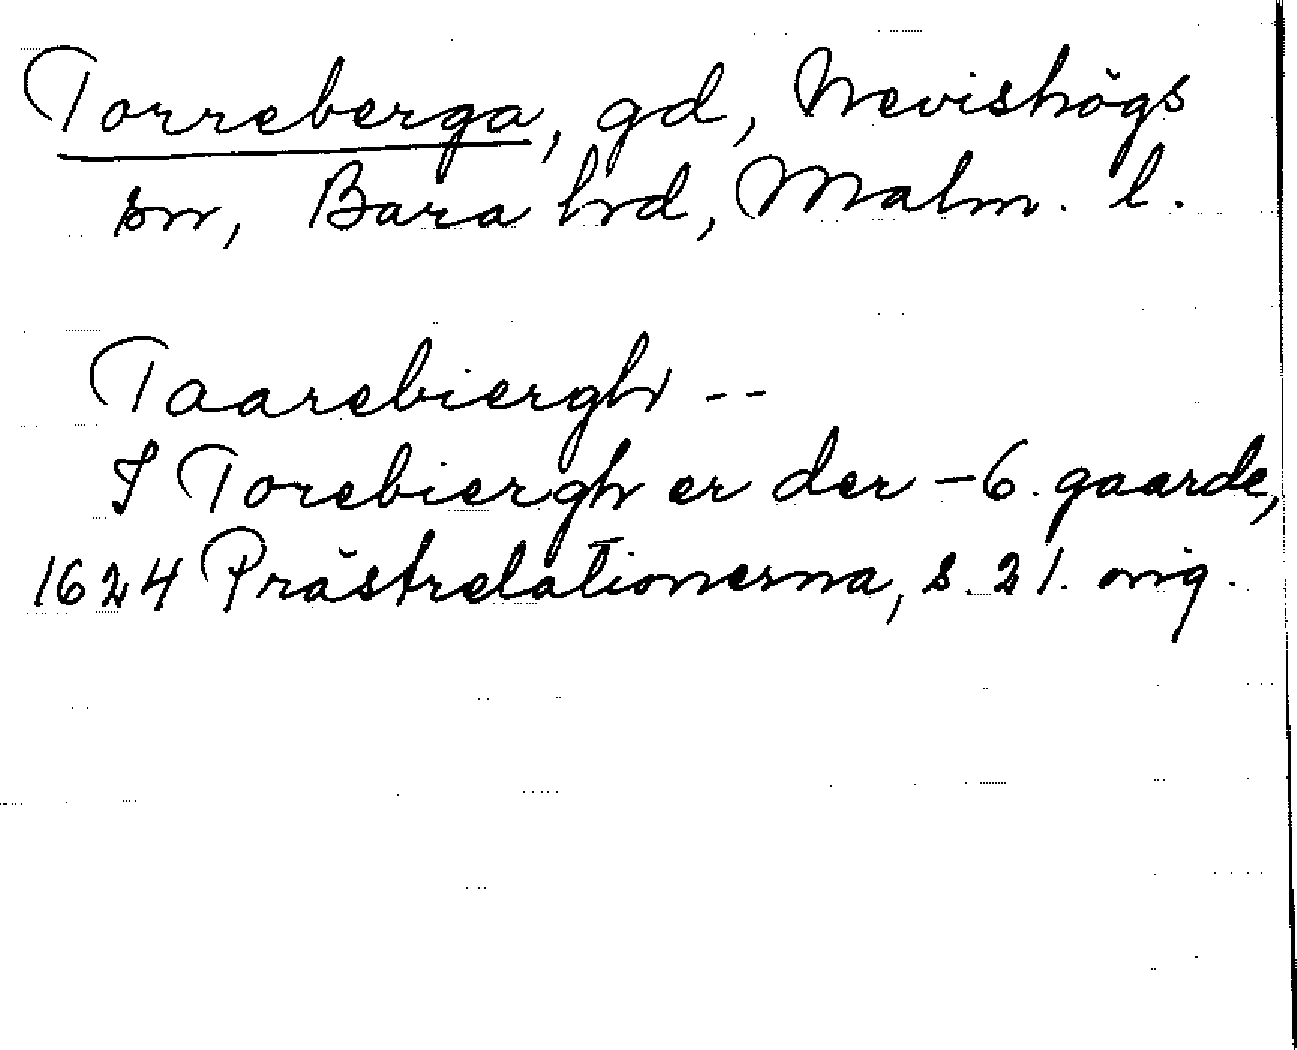 Torreberga, gd, Nevishögs
sn, Bara hd, Malm. l.
Taarebiergh --
I Torebiergh er der - 6. gaarde,
1624 Prästrelationerna, s. 21. orig.